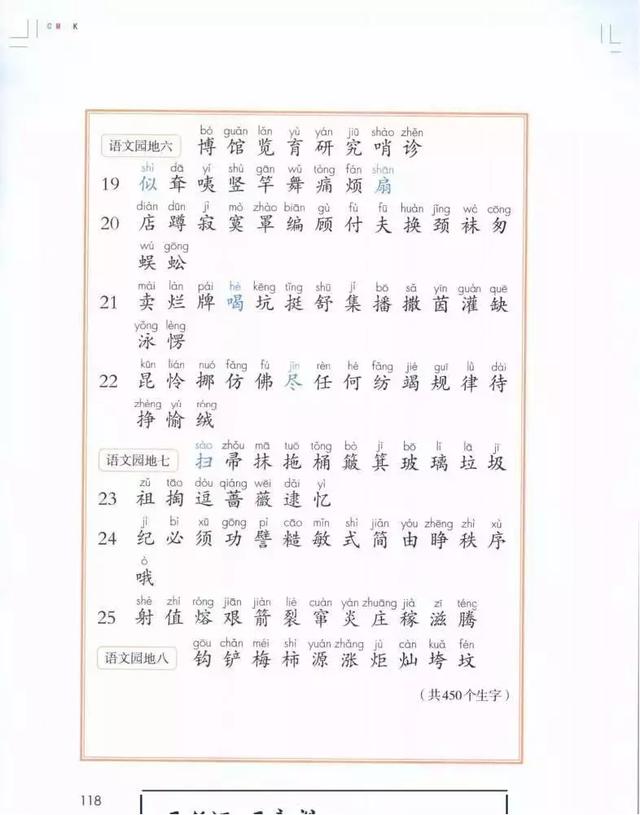 C M K
bó guǎn lǎn yù yán jiū shào zhěn
语文园地六 博 馆 览 育 研 究 哨 诊
shì dā yí shù gān wǔ tòng fán shān
19 似 耷 咦 竖 竿 舞 痛 烦 扇
diàn dūn jì mò zhào biān gù fù fū huàn jǐng wà cōng
20 店 蹲 寂 寞 罩 编 顾 付 夫 换 颈 袜 匆
wú gōng
蜈 蚣
mài làn pái hē kēng tǐng shū jí bō sǎ yīn guàn quē
21 卖 烂 牌 喝 坑 挺 舒 集 播 撒 茵 灌 缺
yǒng lèng
泳 愣
kūn lián nuó fǎng fú jìn rèn hé fǎng jié guī lǜ dài
22 昆 怜 挪 仿 佛 尽 任 何 纺 竭 规 律 待
zhèng yú róng
挣 愉 绒
sào zhǒu mā tuō tǒng bò jī bō lí lā jī
语文园地七 扫 帚 抹 拖 桶 簸 箕 玻 璃 垃 圾
zǔ tāo dòu qiáng wēi dǎi yì
23 祖 掏 逗 蔷 薇 逮 忆
jì bì xū gōng pì cāo mǐn shì jiǎn yóu zhēng zhì xù
24 纪 必 须 功 譬 糙 敏 式 简 由 睁 秩 序
ó
哦
shè zhí róng jiān jiàn liè cuàn yán zhuāng jià zī téng
25 射 值 熔 艰 箭 裂 窜 炎 庄 稼 滋 腾
gōu chǎn méi shì yuán zhǎng jù càn kuǎ fén
语文园地八 钩 铲 梅 柿 源 涨 炬 灿 垮 坟
（共450个生字）
118